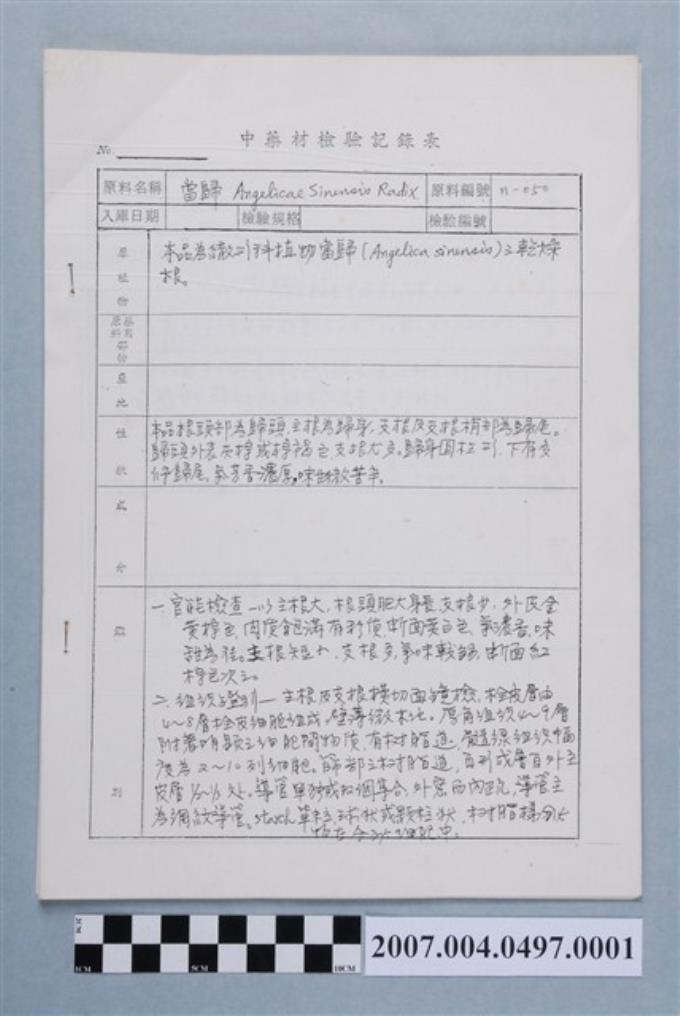 中藥材檢驗記錄表
No.
原料名稱 當歸 Angelicae Sinensis Radix 原料編號 n-050
入庫日期 檢驗規格 檢驗編號
原植物 本品為繖形科植物當歸(Angelica sinensis)之乾燥
根。
產地
性狀 本品根頭部為歸頭,主根為歸身,支根及支根梢部為歸尾。
歸頭外表灰棕或棕褐色支根大多。歸身圓柱形,下有支
仔歸尾,氣芳香濃厚,味甜微苦辛。
成分
鑑別 一.官能檢查—以主根大,根頭肥大身長支根少,外皮金
黃棕色,肉質飽滿有粉質,斷面黃白色,氣濃香,味
甜為佳。主根短小,支根多,氣味較弱,斷面紅
棕色次之。
二.組織鑑別—主根及支根橫切面鏡檢,栓皮層由
4~8層栓皮細胞組成,壁薄微木化。厚角組織4~9層
附著明顯之細胞間物質,有樹脂道,髓線組織幅
度為2~10列細胞。篩部之樹脂道,
皮層⅓~½處。導管單獨或數個集合,外窄而內疏,導管主
為網紋導管。starch單粒,球狀或顆粒狀,樹脂樣分泌
物在分泌道中。
2007.004.0497.0001
1CM
5CM
10CM